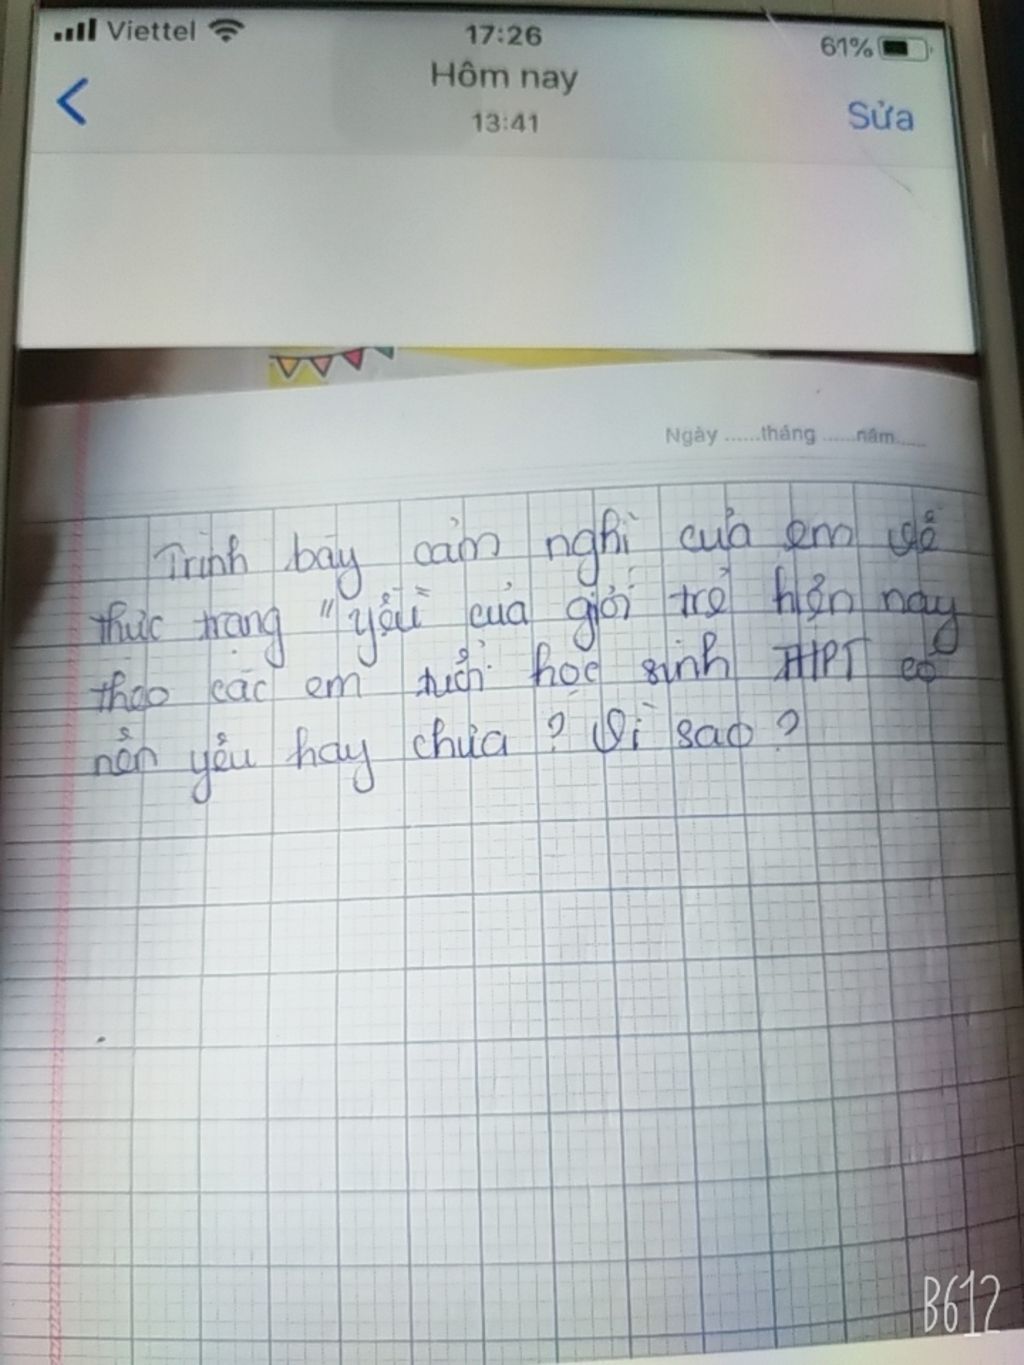 Viettel 17:26 61%
Hôm nay
13:41 Sửa
Ngày ......tháng ......năm......
Trình bày cảm nghĩ của em về
thực trạng "yêu" của giới trẻ hiện nay
theo các em tuổi học sinh THPT có
nên yêu hay chưa? Vì sao?
B612